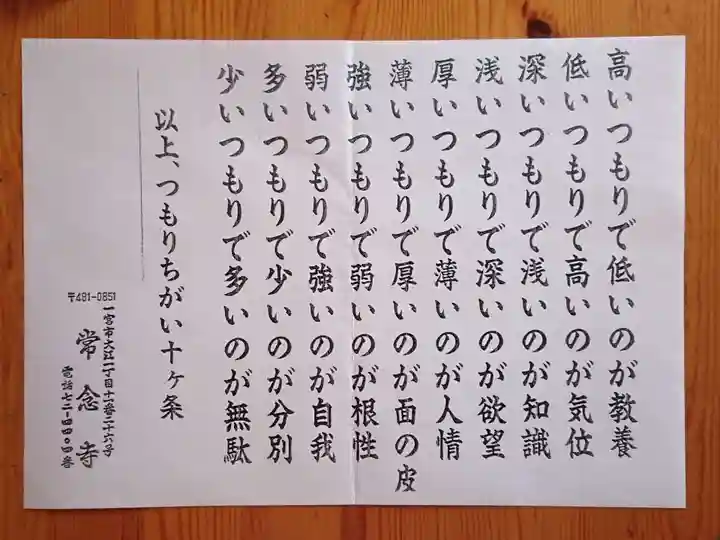 高いつもりで低いのが教養
低いつもりで高いのが気位
深いつもりで浅いのが知識
浅いつもりで深いのが欲望
厚いつもりで薄いのが人情
薄いつもりで厚いのが面の皮
強いつもりで弱いのが根性
弱いつもりで強いのが自我
多いつもりで少いのが分別
少いつもりで多いのが無駄
以上、つもりちがい十ヶ条
〒491-0851
一宮市大江一丁目十一番二十六号
常念寺
電話七二-四四〇四番